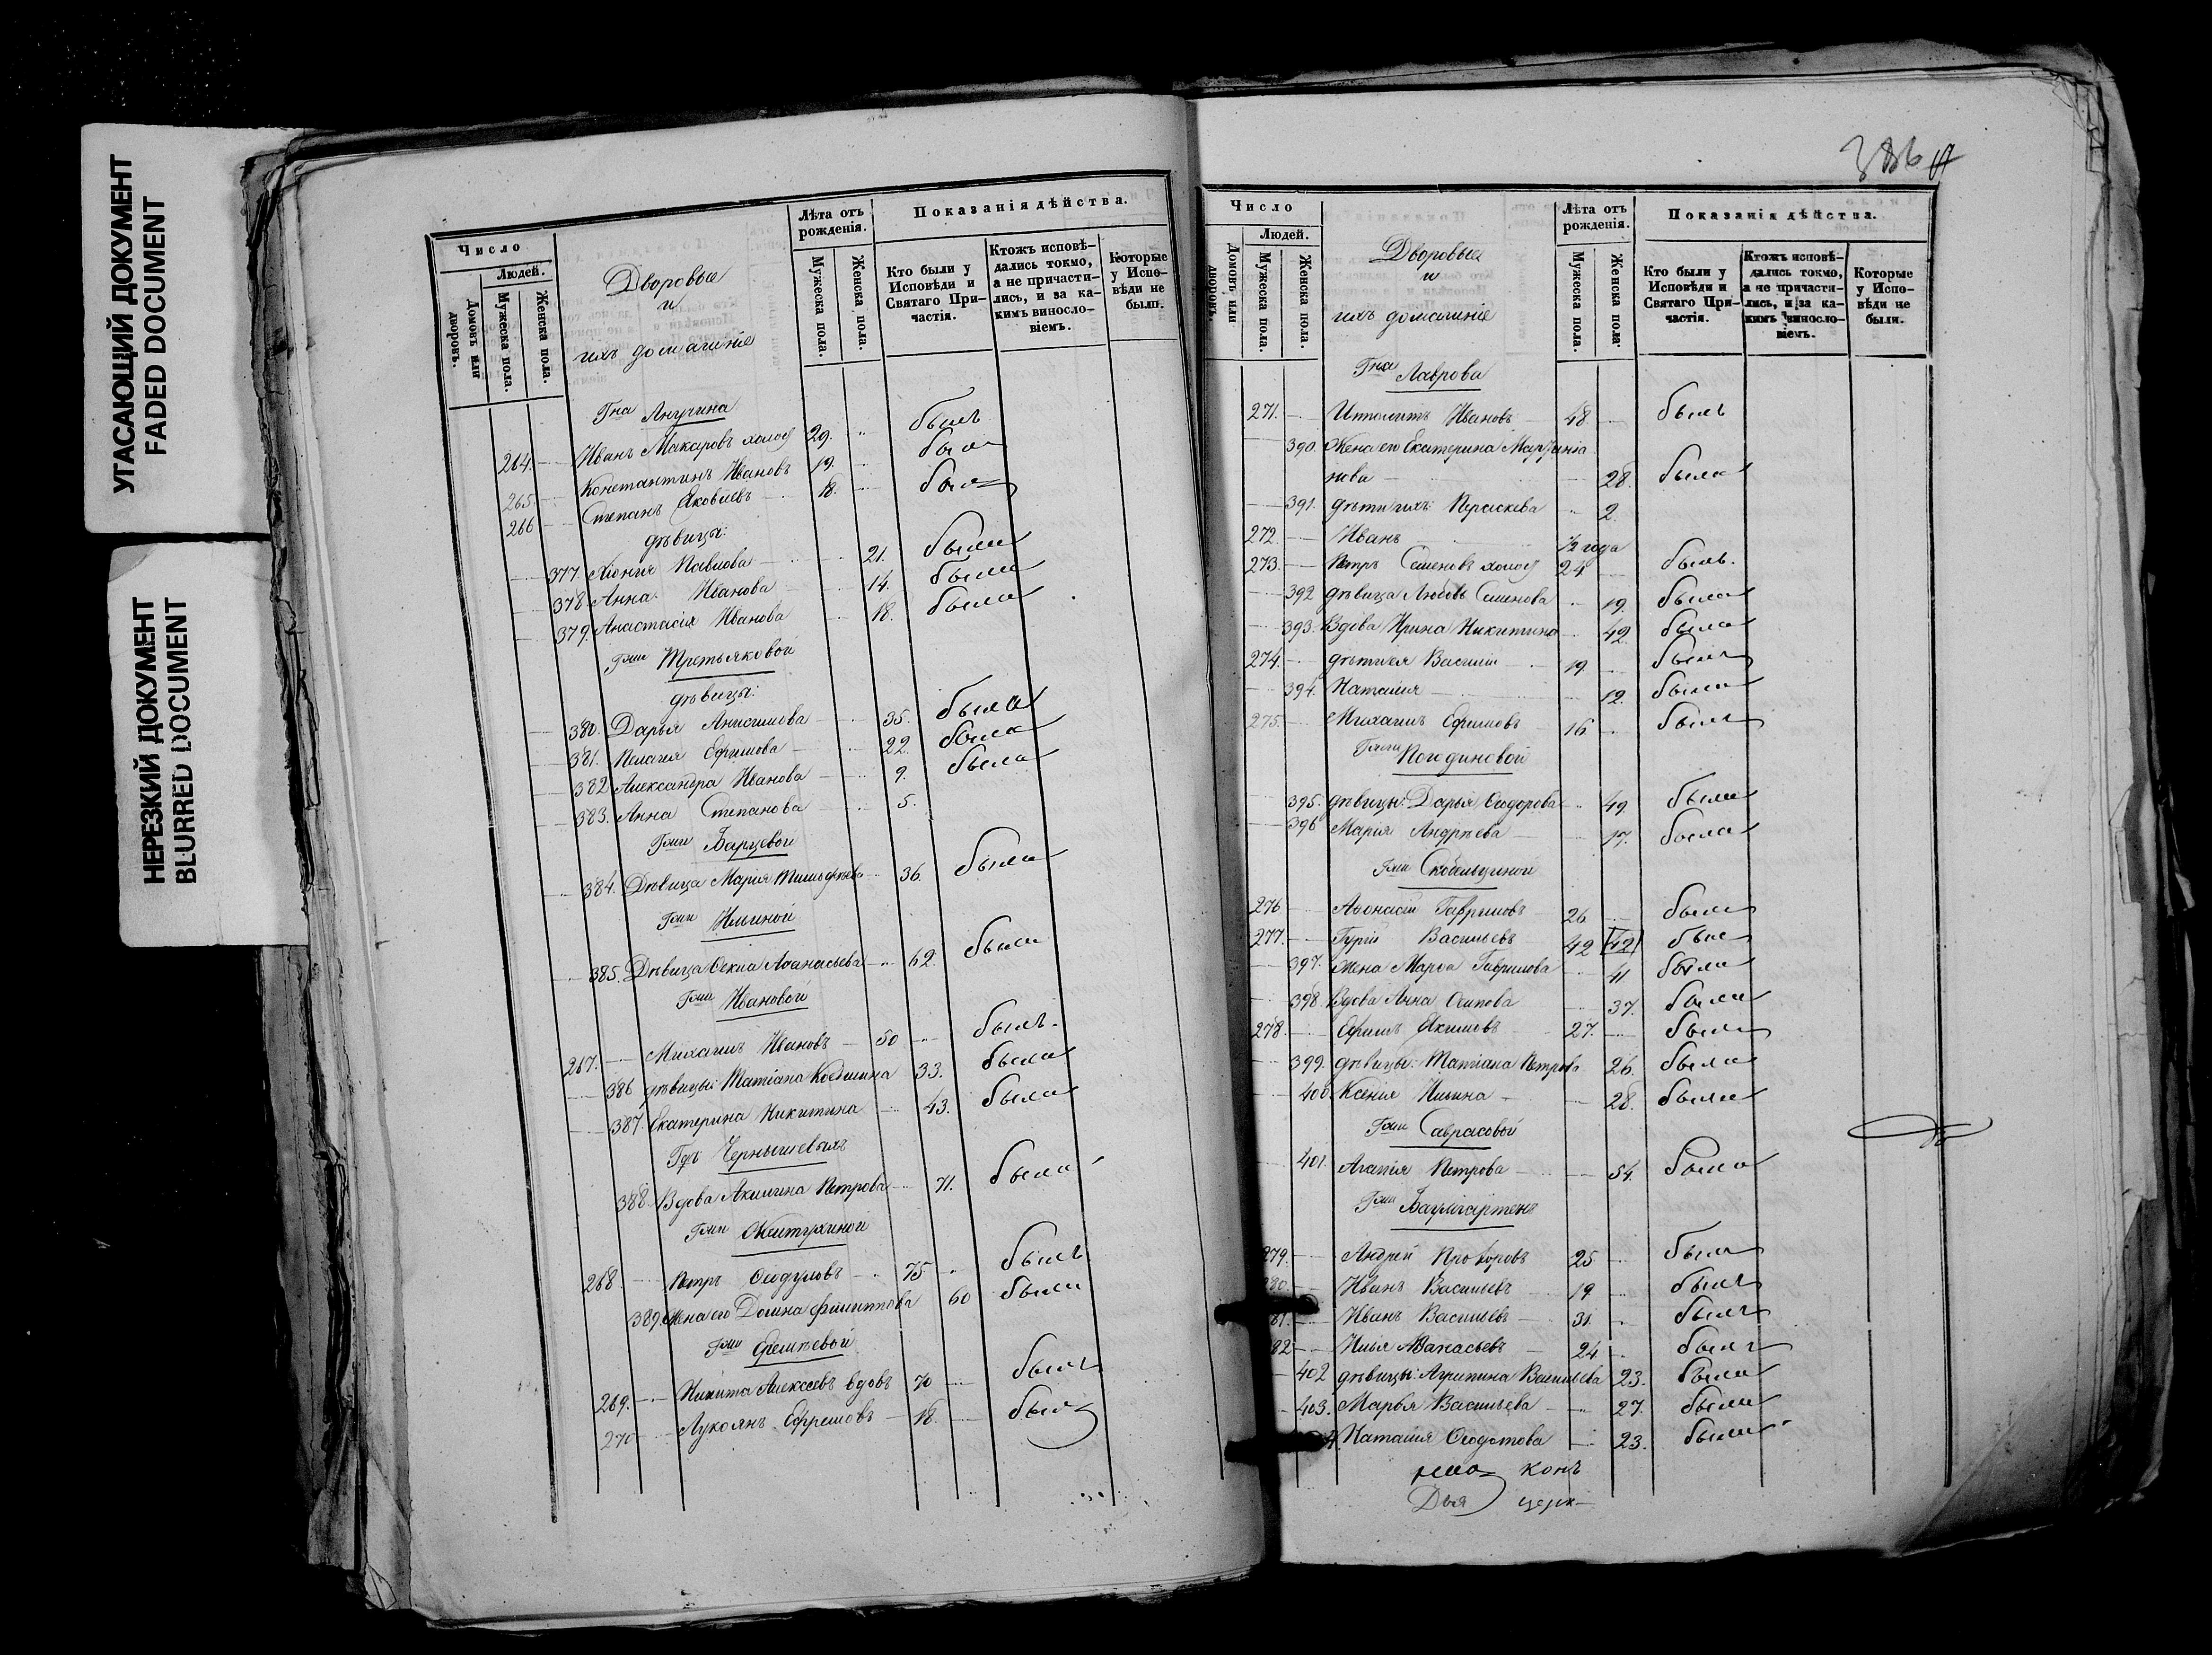 УГАСАЮЩИЙ ДОКУМЕНТ
FADED DOCUMENT
НЕРЕЗКИЙ ДОКУМЕНТ
BLURRED DOCUMENT
Число
Людей.
Домовъ или дворовъ.
Мужеска пола.
Женска пола.
Дворовые
и
ихъ домашніе
Лѣта отъ рожденія.
Мужеска пола.
Женска пола.
Показанія дѣйства.
Кто были у Исповѣди и Святаго Причастія.
Ктожъ исповѣдались токмо, а не причастились, и за какимъ винословіемъ.
Которые у Исповѣди не были.
Гна
264. Иванъ Макаровъ холос 29. былъ
265. Константинъ Ивановъ 19. был
266 Степанъ Яковлевъ 18. был
дѣвицы:
377. Хіонія Павлова 21. была
378. Анна Иванова 14. была
379. Анастасія Иванова 18. была
Гжи Третьяковой
дѣвицы:
380. Дарья Анисимова 35. была
381. Пелагія Ефимова 22. была
382 Александра Иванова 9. была
383. Анна Степанова 5.
Гжи Барцевой
384. Дѣвица Марія 36. была
Гжи Ильиной
385. Дѣвица Ѳекла Аѳанасьева 62. была
Гжи Ивановой
267. Михаилъ Ивановъ 50 былъ
386 дѣвицы: Татіана Козмина 33. была
387. Екатерина Никитина 43. была
Гдъ Чернышевыхъ
388. Вдова Акилина Петрова 71. была
Гжи Желтухиной
268. Петръ Ѳедуловъ 75 былъ
389. Жена его Домна Филиппова 60 была
Гжи
269. Никита Алексеевъ вдовъ 70 былъ
270 Лукоянъ Ефремовъ 18. был
386
Число
Людей.
Домовъ или дворовъ.
Мужеска пола.
Женска пола.
Дворовые
и
ихъ домашніе
Лѣта отъ рожденія.
Мужеска пола.
Женска пола.
Показанія дѣйства.
Кто были у Исповѣди и Святаго Причастія.
Ктожъ исповѣдались токмо, а не причастились, и за какимъ винословіемъ.
Которые у Исповѣди не были.
Гна Лаврова
271. Иполитъ Ивановъ 48. былъ
390. Жена его Екатерина
нова 28. была
391. дѣти ихъ: Параскева 2.
272. Иванъ ½ года
273. Петръ Семеновъ холос 24 былъ.
392 дѣвица Любовь Семенова 19. была
393. Вдова Ирина Никитина 42. была
274. дѣти ея Василій 19. былъ
394. Наталия 12. была
275. Михаилъ Ефимовъ 16 былъ
Гжи Погодиновой
395. дѣвицы: Дарья Ѳодорова 49. была
396 Марія Андрѣева 17. была
Гжи Скобельциной
276 Аѳонасій Гавриловъ 26 былъ
277. Гурій Васильевъ 42 42 был
397. Жена Марѳа Гаврилова 41 была
398. Вдова Анна Осипова 37. была
278. Ефимъ Якимовъ 27. былъ
399. дѣвицы: Татіана Петрова 26. была
400. Ксенія Ильина 28. была
Гжи Саврасовой
401. Агапія Петрова 54. была
Гжи Баумгартенъ
279. Андрей Прохоровъ 25 былъ
80. Иванъ Васильевъ 19 былъ
81. Иванъ Васильевъ 31. былъ
82 Илья Аѳанасьевъ 24 былъ
402 дѣвицы: Агрипина Васильева 23. была
403. Марья Васильева 27. была
4. Наталия Ѳодотова 23. была